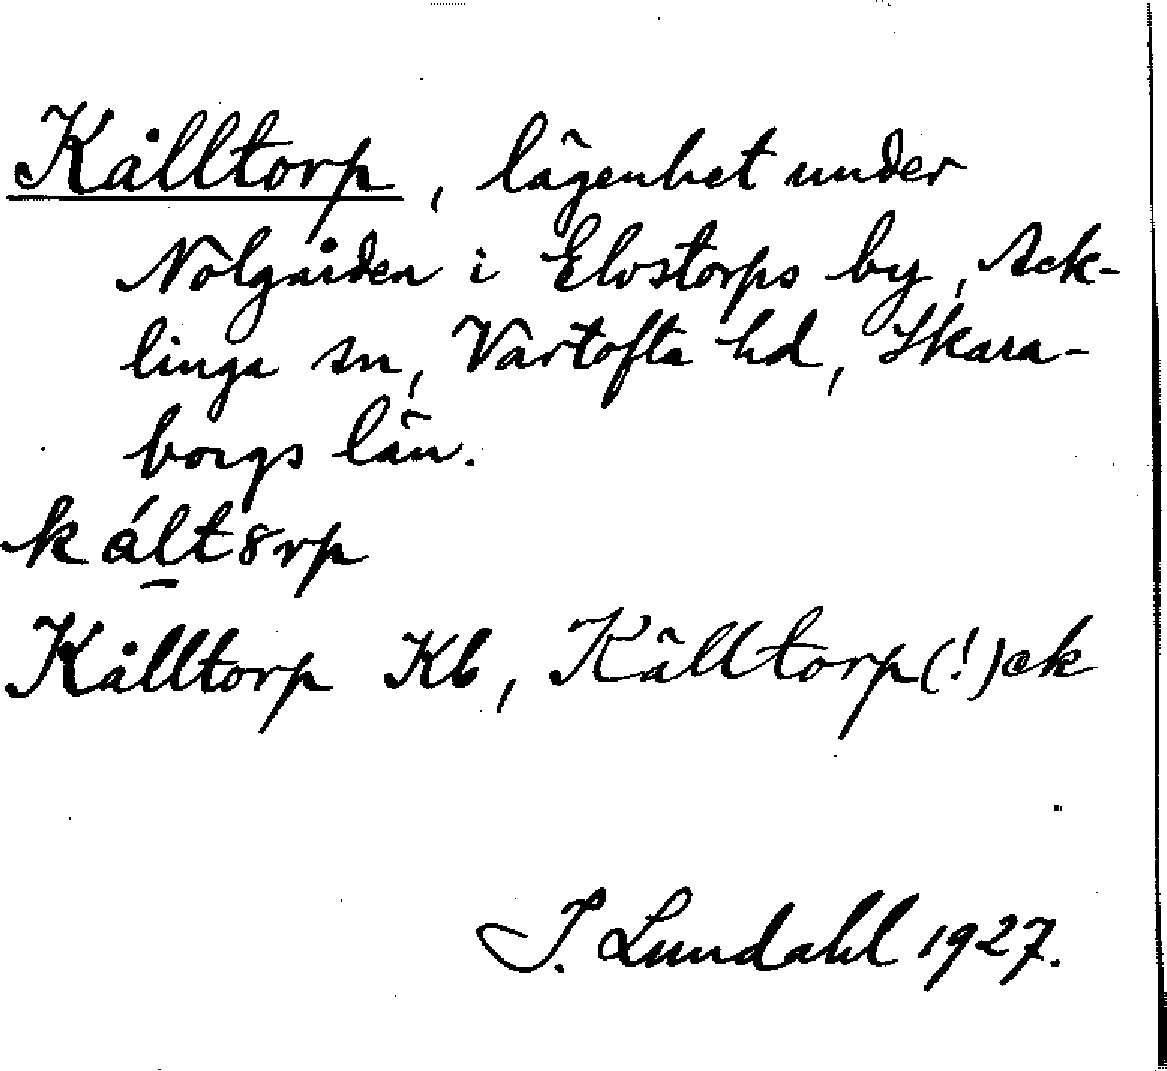 Kålltorp, lägenhet under
Nolgården i Elvstorps by, Ack-
linga sn, Vartofta hd, Skara-
borgs län.
kált8rp
Kålltorp Kb, Källtorp(!)ek
I. Lundahl 1927.